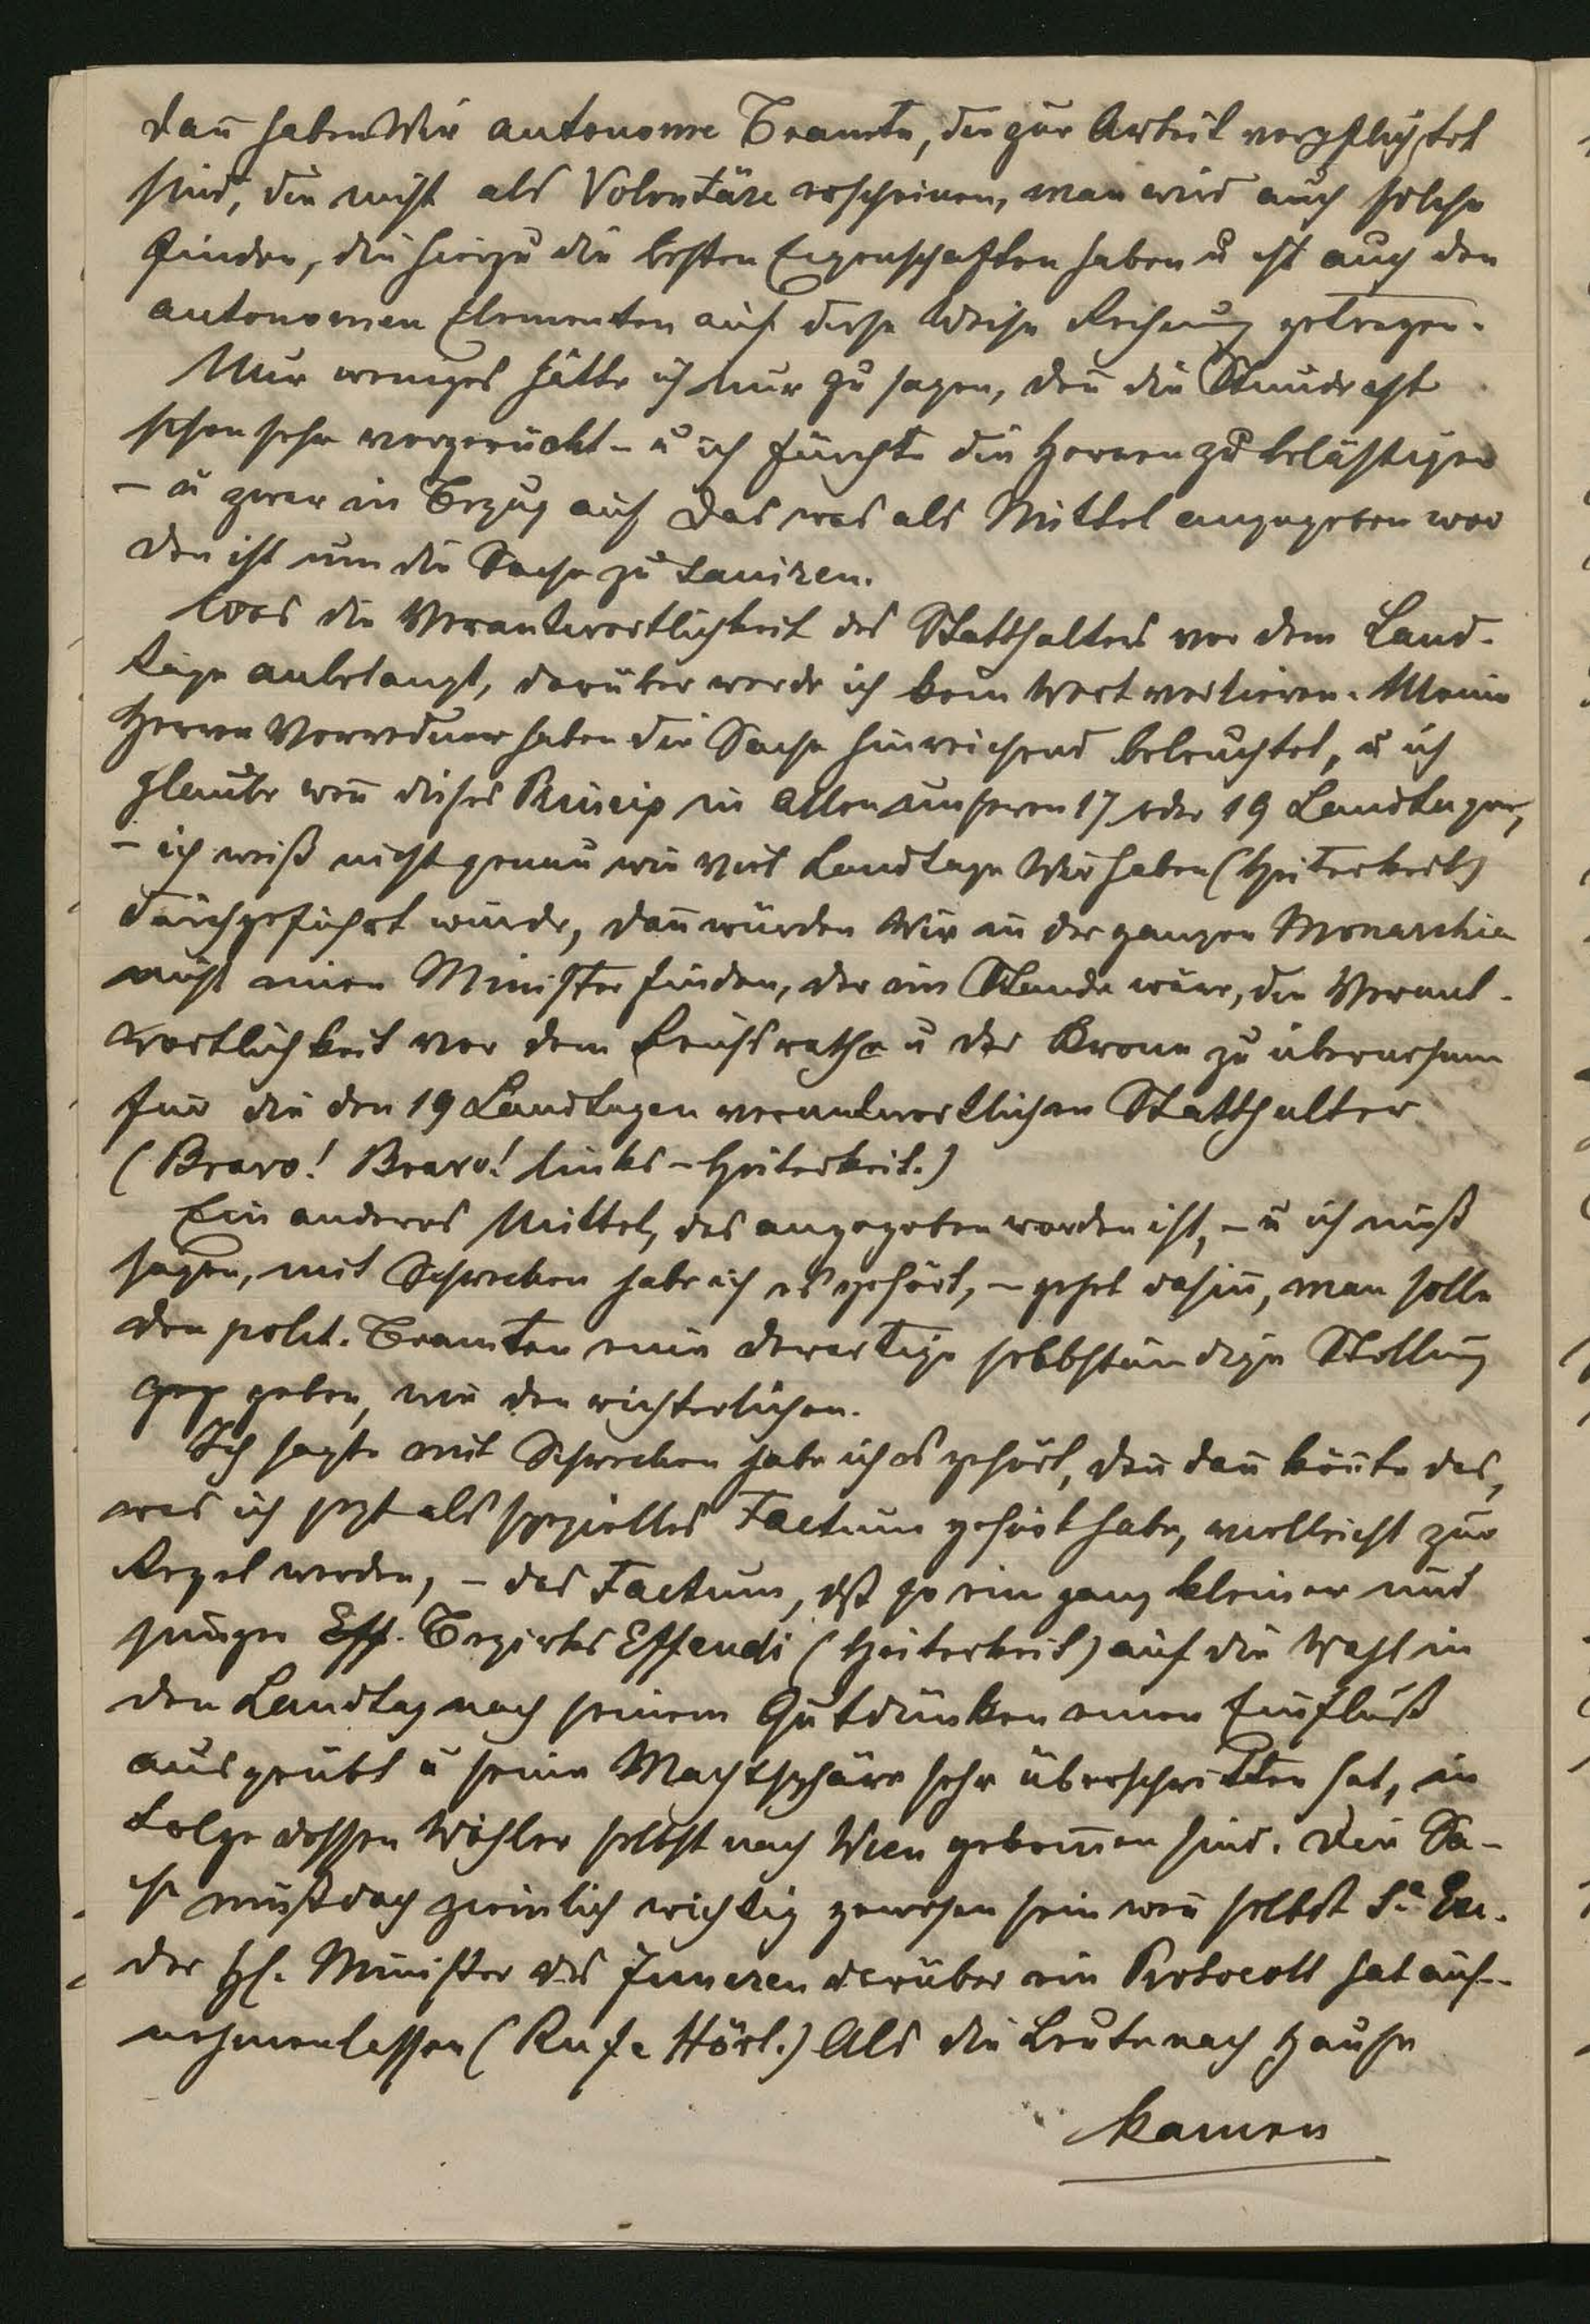 dañ haben Wir autonome Beamte, die zur Arbeit verpflichtet
sind, die nicht als Volontäre erscheinen, man wird auch solche
finden, die hierzu die besten Eigenschaften haben u ist auch den
autonomen Elementen auf diese Weise Rechnung getragen.
Nur weniges hätte ich nur zu sagen, deñ die Stunde ist
schon sehr vorgerückt – u ich fürchte die Herren zu belästigen
– u zwar in Bezug auf das was als Mittel angegeben wor
den ist um die Sache zu saniren.
Was die Verantwortlichkeit des Statthalters vor dem Land-
tage anbelangt, darüber werde ich kein Wort verlieren. Meine
Herren Vorredner haben die Sache hinreichend beleuchtet, u ich
glaube weñ dieses Princip in allen unseren 17 oder 19 Landtagen,
– ich weiß nicht genau wie viel Landtage Wir haben (Heiterkeit)
durchgeführt würde, dañ würden Wir in der ganzen Monarchie
nicht einen Minister finden, der im Stande wäre, die Verant-
wortlichkeit vor dem Reichsrathe u der Krone zu übernehmen
für die den 19 Landtagen verantwortlichen Statthalter
(Bravo! Bravo! links – Heiterkeit.)
Ein anderes Mittel, das angegeben worden ist, – u ich muß
sagen, mit Schrecken habe ich es gehört, – gehet dahin, man solle
den polit. Beamten eine derartige selbständige Stellung
geben, wie den richterlichen.
Ich sagte mit Schrecken habe ich es gehört, deñ dañ köñte das,
was ich jezt als spezielles Factum gehört habe, vielleicht zur
Regel werden, – das Factum, dß so ein ganz kleiner und
junger Eff. Bezirks Effendi (Heiterkeit) auf die Wahl in
den Landtag nach seinem Gutdünken einen Einfluß
ausgeübt u seine Machtsphäre sehr überschritten hat, in
Folge dessen Wähler selbst nach Wien gekom̄en sind. Die Sa-
che muß doch ziemlich wichtig gewesen sein weñ selbst Se Exc.
der H. Minister des Inneren darüber ein Protocoll hat auf-
nehmen lassen (Rufe Hört.) Als die Leute nach Hause
kamen